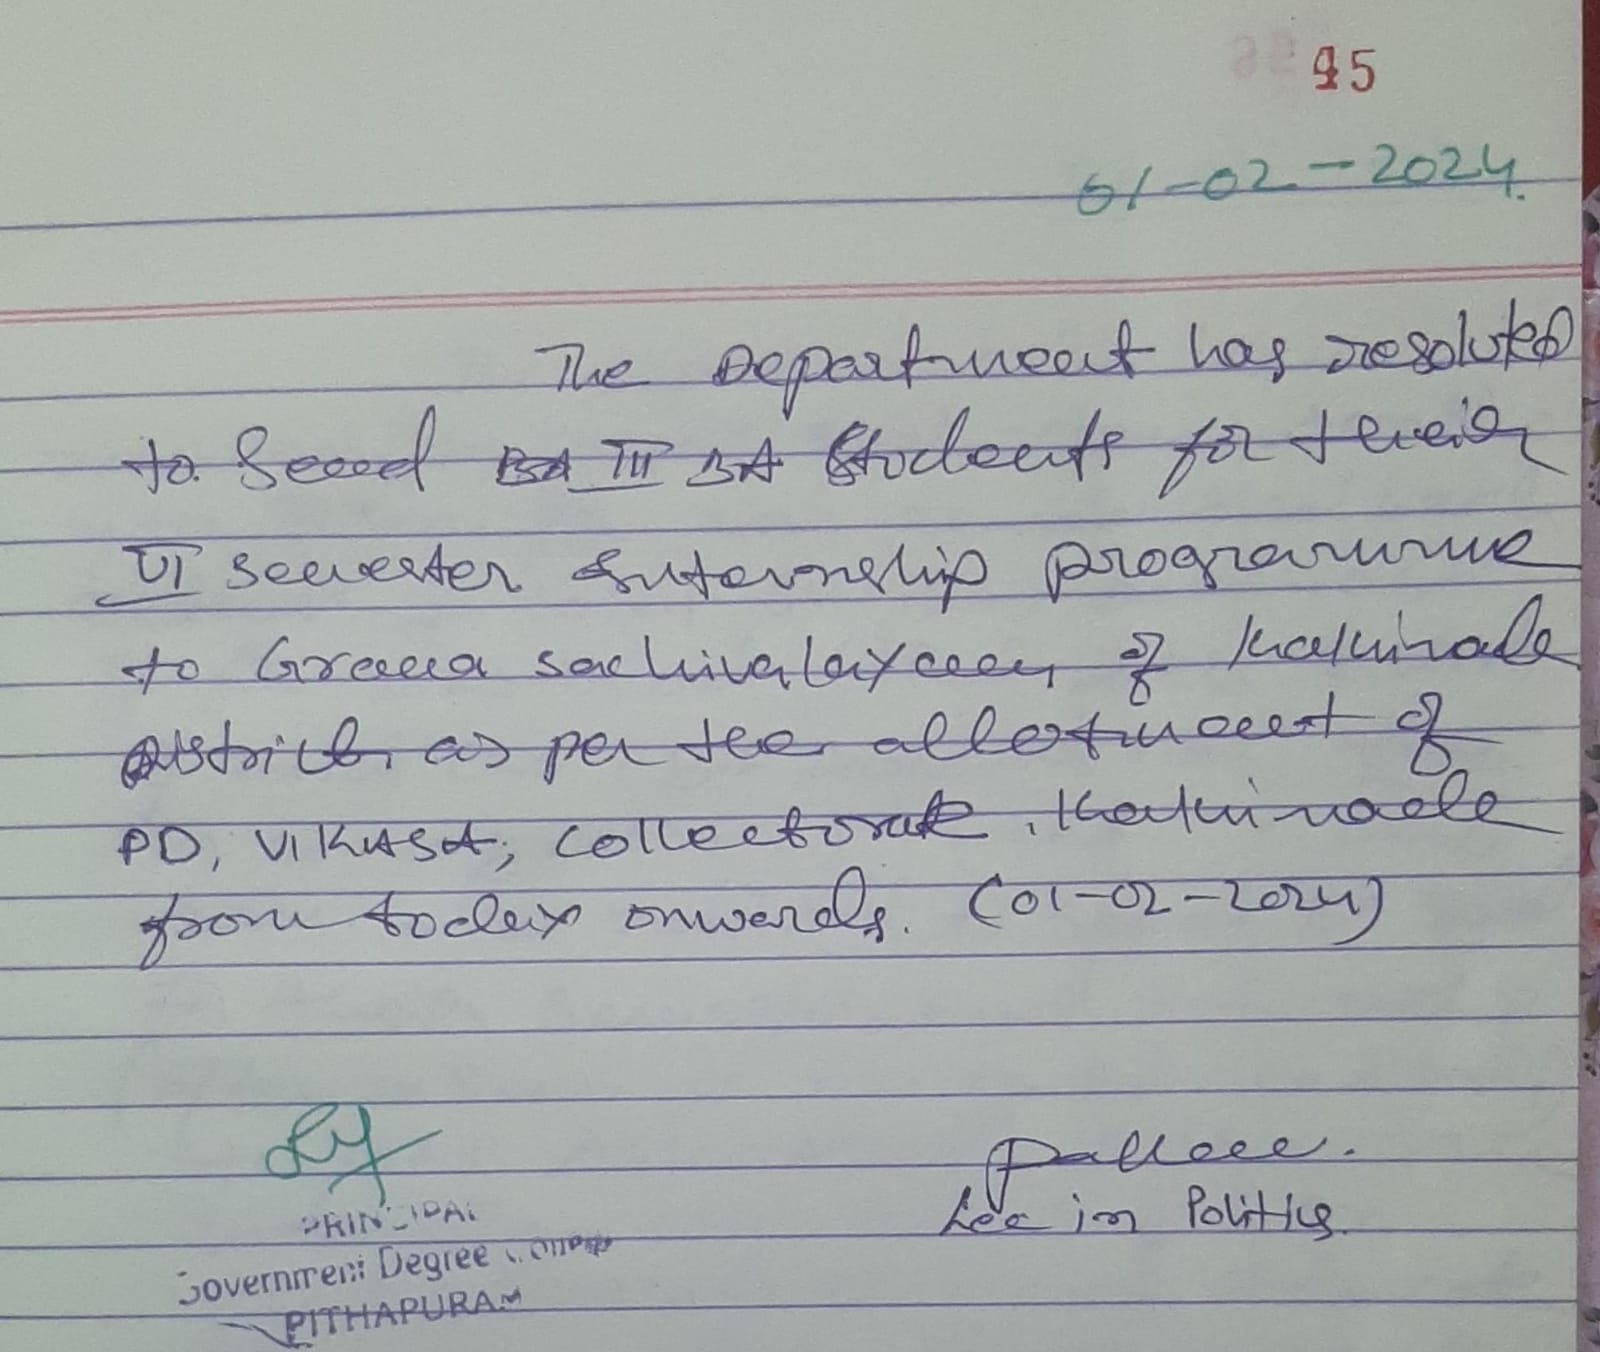 95
01-02-2024.
The Department has resoluted
to send BA III BA Students for their
VI semester Internship programme
to Grama sachivalayam, of Kakinada
District, as per the allotment of
PD, VIKASA, Collectorate, Kakinada
from today onwards. (01-02-2024)
PRINCIPAL
Government Degree College
PITHAPURAM
Lec in Politics.